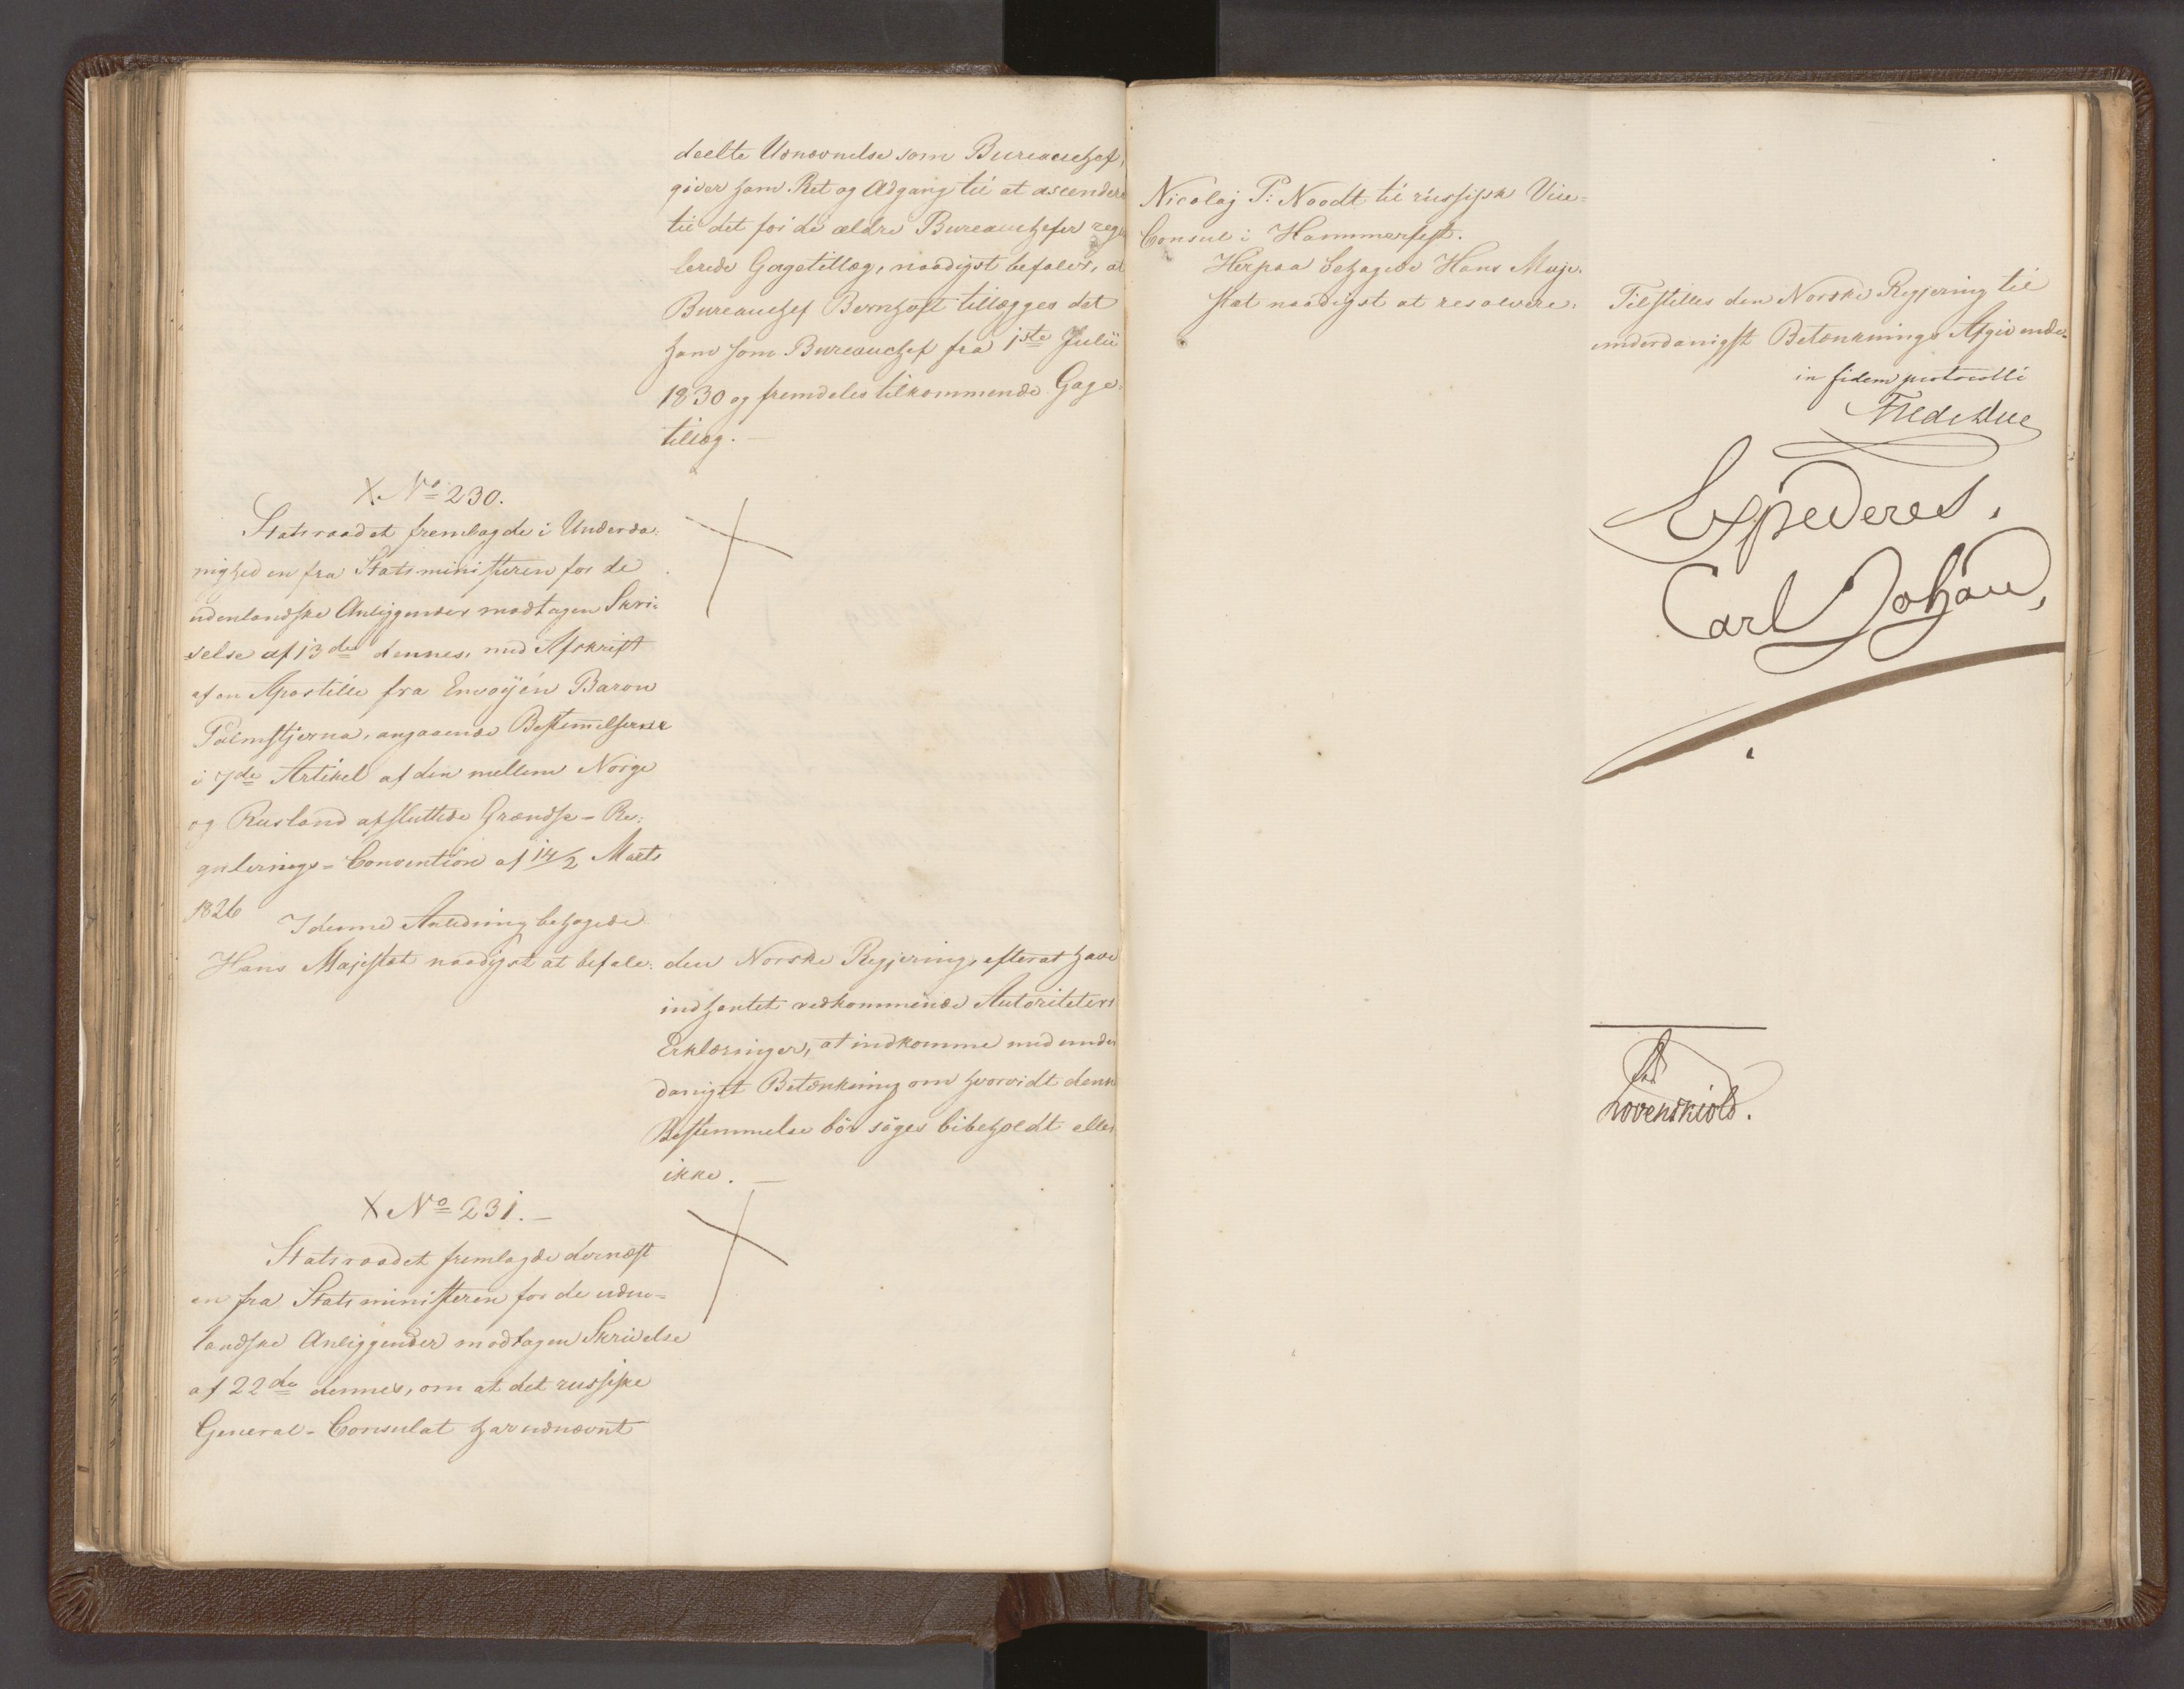 deelte Udnævnelse som Bureauchef,
giver ham Ret og Adgang til at ascendere
til det for de ældre Bureauchefer regu
lerede Gagetillæg, naadigst befaler, at
Bureauchef Bernhoft tillægges det
ham som Bureauchef fra 1ste Julii
1830 og fremdeles tilkommende Gage-
tillæg. —
X No 230.
Statsraadet fremlagde i Underda-
nighed en fra Statsministeren for de
udenlandske Anliggender modtagen Skri-
velse af 13de dennes, med Afskrift
af en Apostille fra Envoyén Baron
Palmstjerna, angaaende Bestemelserne
i 7de Artikel af den mellem Norge
og Rusland afsluttede Grændse-Re-
gulerings-Convention af 14/2 Marts
1826 I denne Anledning behagede
Hans Majestæt naadigst at befale:
den Norske Regjering, efterat have
indhentet vedkommende Autoriteters
Erklæringer, at indkomme med under
danigst Betænkning om hvorvidt denne
Bestemmelse bør søges bibeholdt eller
ikke. —
X No 231. —
Statsraadet fremlagde dernæst
en fra Statsministeren for de uden-
landske Anliggender modtagen Skrivelse
af 22de dennes, om at det russiske
General-Consulat har udnævnt
Nicolaj P: Noodt til russisk Vice-
Consul i Hammerfest.
Herpaa behagede Hans Maje-
stæt naadigst at resolvere:
Tilstilles den Norske Regjering til
underdanigst Betænknings Afgivende.
in fidem protocolli
Fredr Due
Expederes.
Carl Johan,
Løvenskiold.